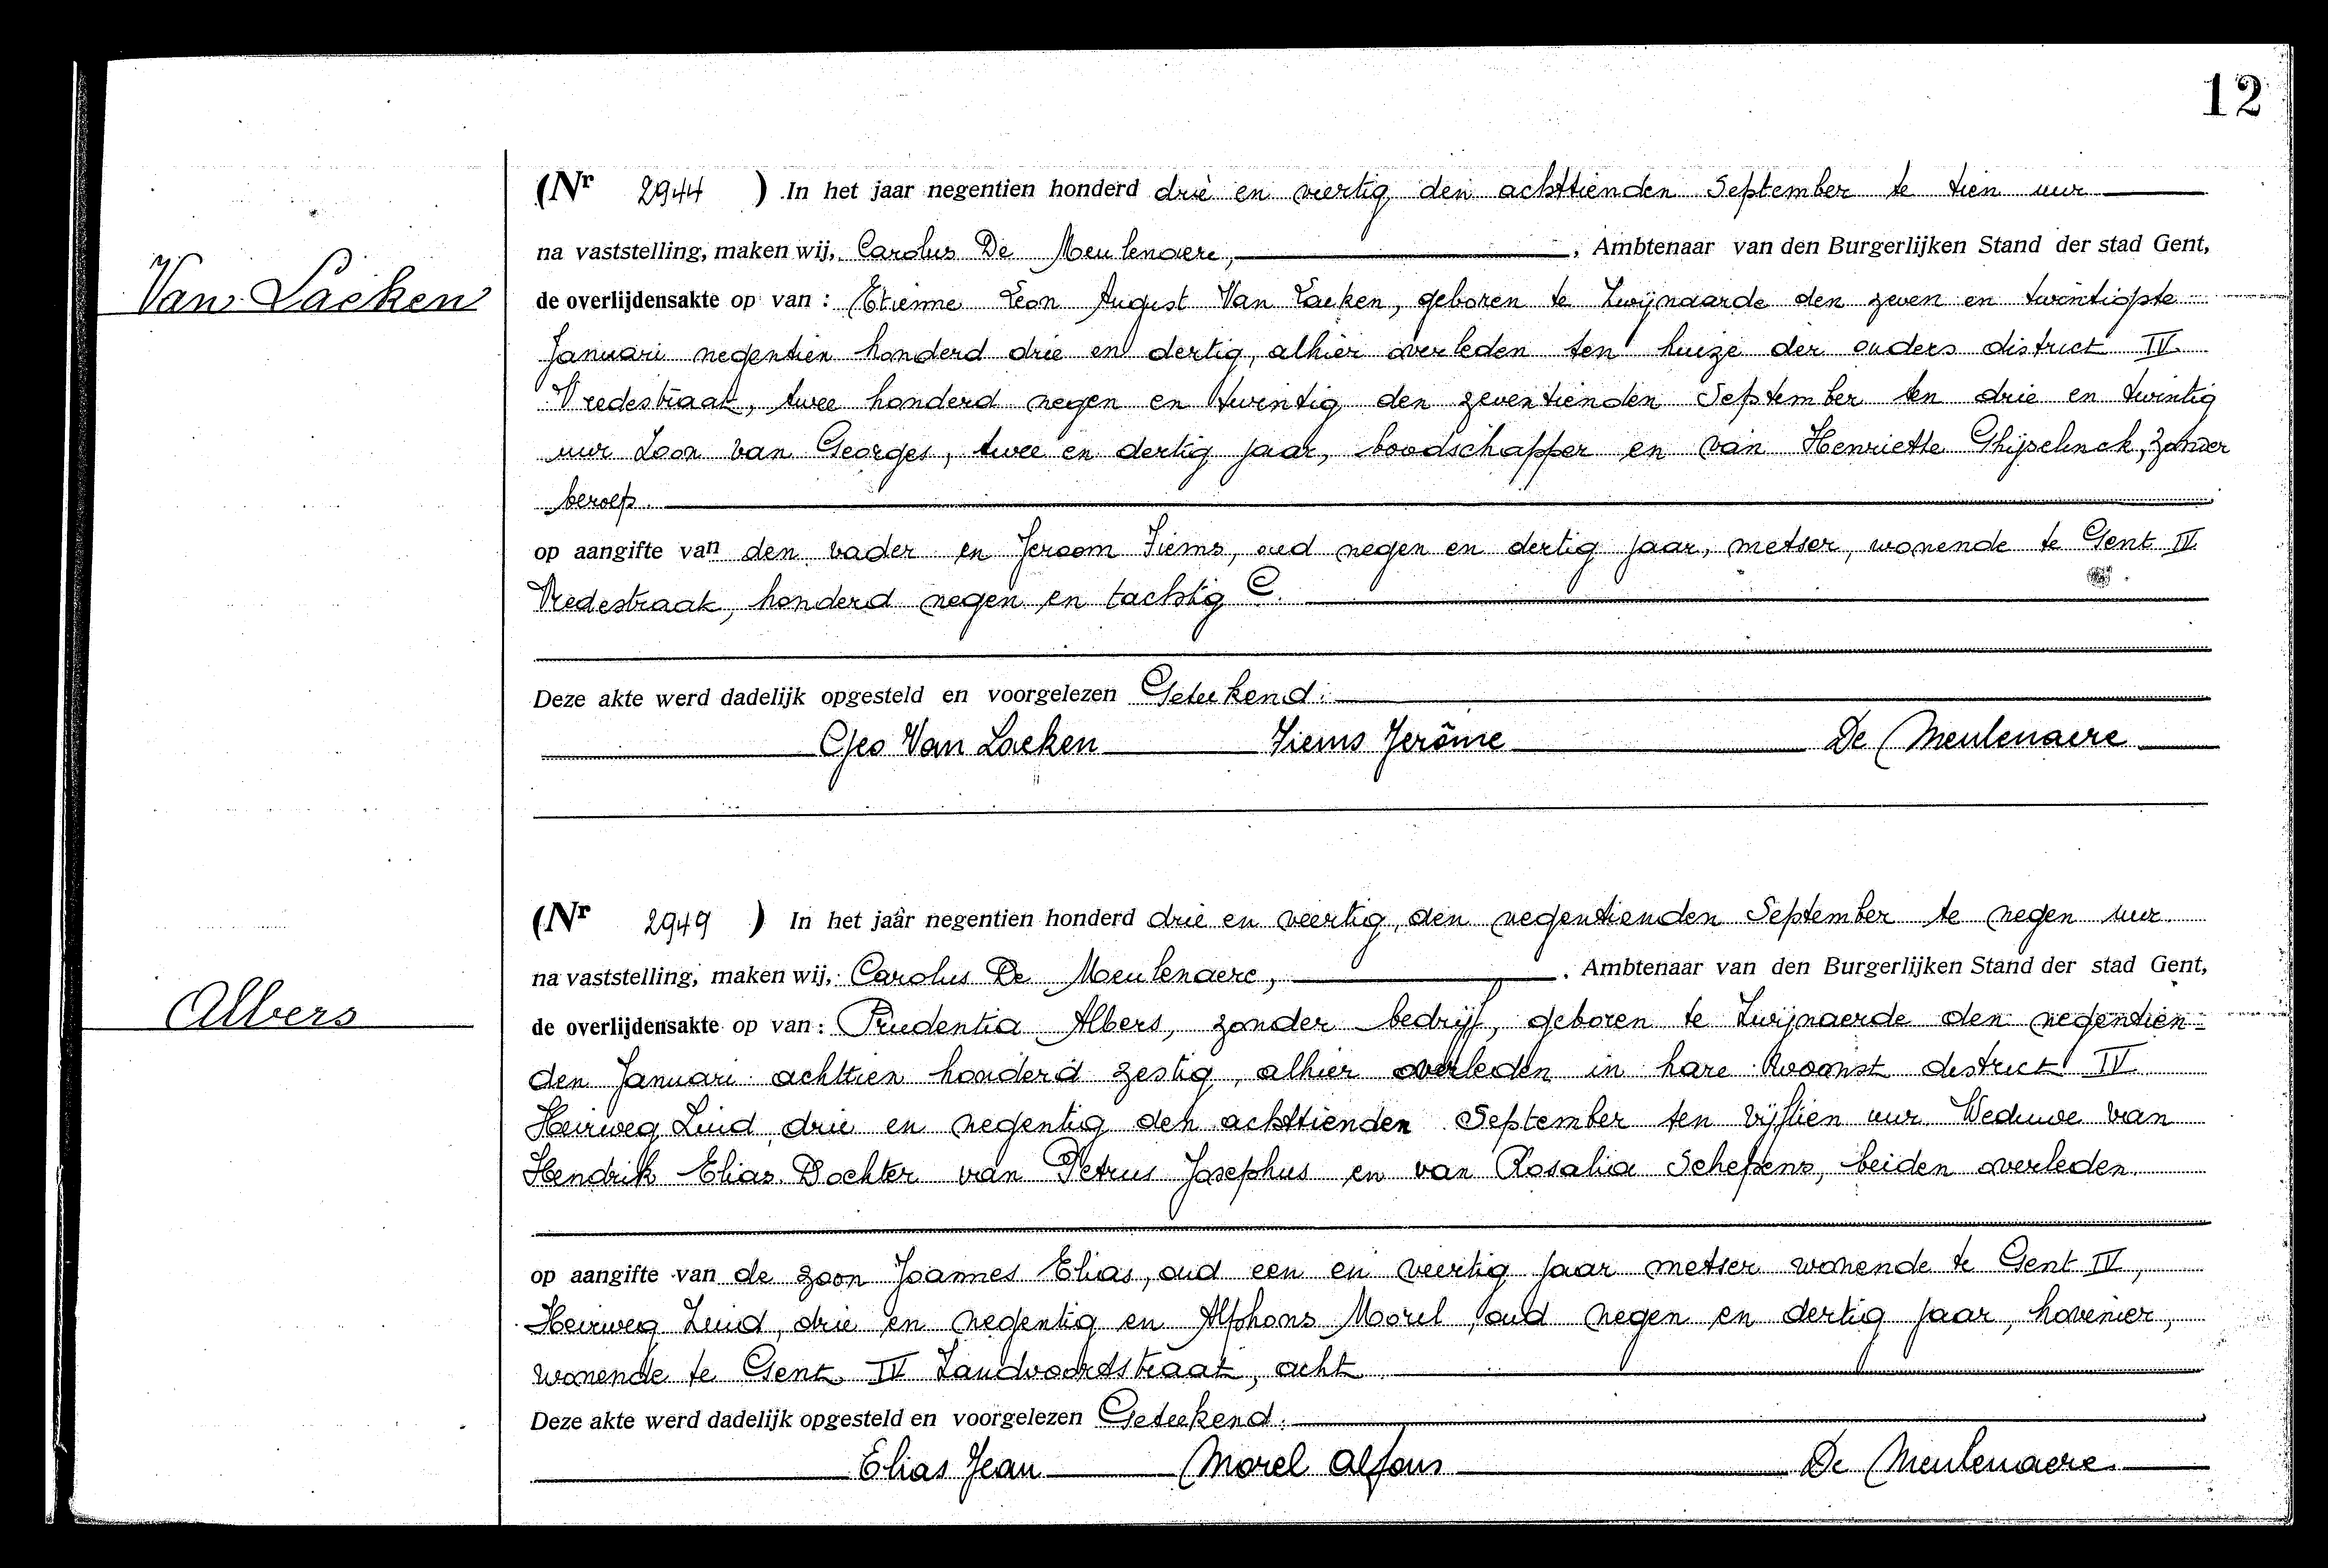 12
(Nr 2944 ) In het jaar negentien honderd drie en veertig den achttienden September te tien uur
na vaststelling, maken wij, Carolus De Meulenaere, , Ambtenaar van den Burgerlijken Stand der stad Gent,
Van Laeken
de overlijdensakte op van : Etienne Leon August Van Laeken, geboren te Zwijnaarde den zeven en twintigste
Januari negentien honderd drie en dertig, alhier overleden ten huize der ouders district IV
Vredestraat, twee honderd negen en twintig den zeventienden September ten drie en twintig
uur Zoon van Georges, twee en dertig jaar, boodschapper en van Henriette Ghijselinck, zonder
beroep.
op aangifte van den vader en Jeroom Tiems, oud negen en dertig jaar, metser, wonende te Gent IV
Vredestraat, honderd negen en tachtig C.
Deze akte werd dadelijk opgesteld en voorgelezen Geteekend:
Geo Van Laeken Tiems Jerôme De Meulenaere
(Nr 2949 ) In het jaar negentien honderd drie en veertig, den negentienden September te negen uur
na vaststelling, maken wij, Carolus De Meulenaere, , Ambtenaar van den Burgerlijken Stand der stad Gent,
Albers
de overlijdensakte op van : Prudentia Albers, zonder bedrijf, geboren te Zwijnaerde den negentien-
den Januari achttien honderd zestig, alhier overleden in hare woonst district IV
Heirweg Zuid, drie en negentig den achttienden September ten vijftien uur. Weduwe van
Hendrik Elias. Dochter van Petrus Josephus en van Rosalia Schepens, beiden overleden.
op aangifte van de zoon Joannes Elias, oud een en veertig jaar metser wonende te Gent IV,
Heirweg Zuid, drie en negentig en Alfhons Morel, oud negen en dertig jaar, hovenier,
wonende te Gent IV Zandvoordstraat, acht
Deze akte werd dadelijk opgesteld en voorgelezen Geteekend:
Elias Jean Morel Alfons De Meulenaere